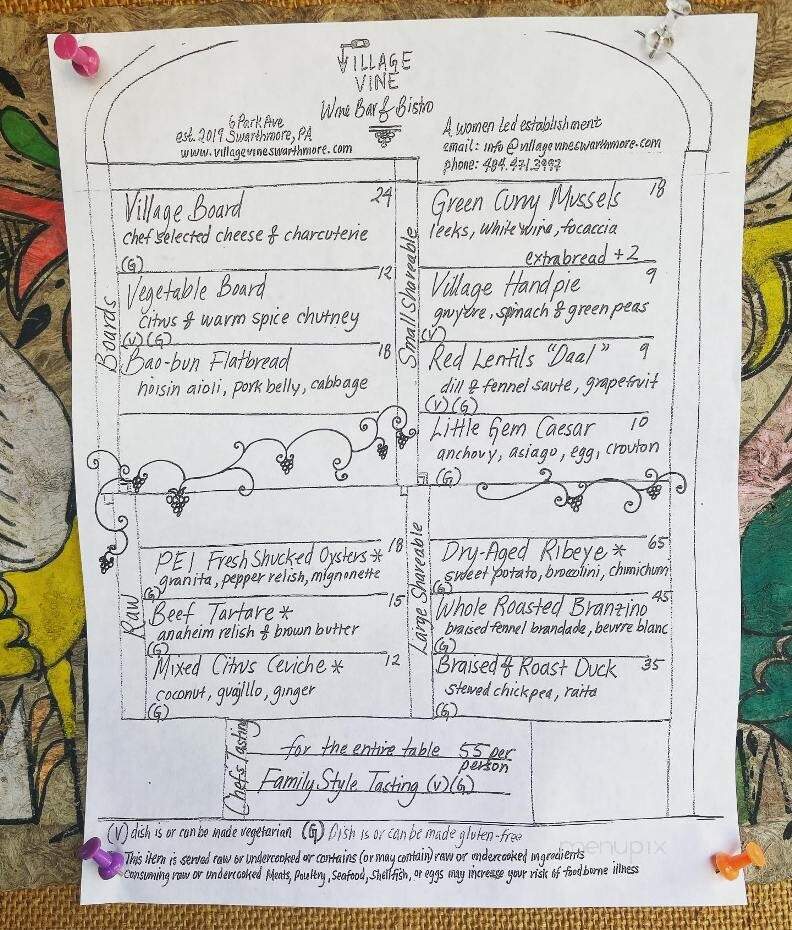 VILLAGE
VINE
Wine Bar & Bistro
6 Park Ave
est. 2019 Swarthmore, PA
www.villagevineswarthmore.com
A women led establishment
email: info@villagevineswarthmore.com
phone: 484.471.3992
Boards
Village Board 24
chef selected cheese & charcuterie
(G)
Vegetable Board 12
citrus & warm spice chutney
(V)(G)
Bao-bun Flatbread 18
hoisin aioli, pork belly, cabbage
Small Shareable
Green Curry Mussels 18
leeks, white wine, focaccia
extra bread +2
Village Handpie 9
gruyere, spinach & green peas
(V)
Red Lentils "Daal" 9
dill & fennel saute, grapefruit
(V)(G)
Little Gem Caesar 10
anchovy, asiago, egg, crouton
(G)
Raw
PEI Fresh Shucked Oysters * 18
granita, pepper relish, mignonette
(G)
Beef Tartare * 15
anaheim relish & brown butter
(G)
Mixed Citrus Ceviche * 12
coconut, guajillo, ginger
(G)
Large Shareable
Dry-Aged Ribeye * 65
sweet potato, broccolini, chimichurri
(G)
Whole Roasted Branzino 45
braised fennel brandade, beurre blanc
(G)
Braised & Roast Duck 35
stewed chickpea, raita
(G)
Chefs Tasting
for the entire table 55 per
person
Family Style Tasting (V)(G)
(V) dish is or can be made vegetarian (G) Dish is or can be made gluten-free
This item is served raw or undercooked or contains (or may contain) raw or undercooked ingredients
consuming raw or undercooked Meats, Poultry, Seafood, Shellfish, or eggs may increase your risk of foodborne illness
menupix